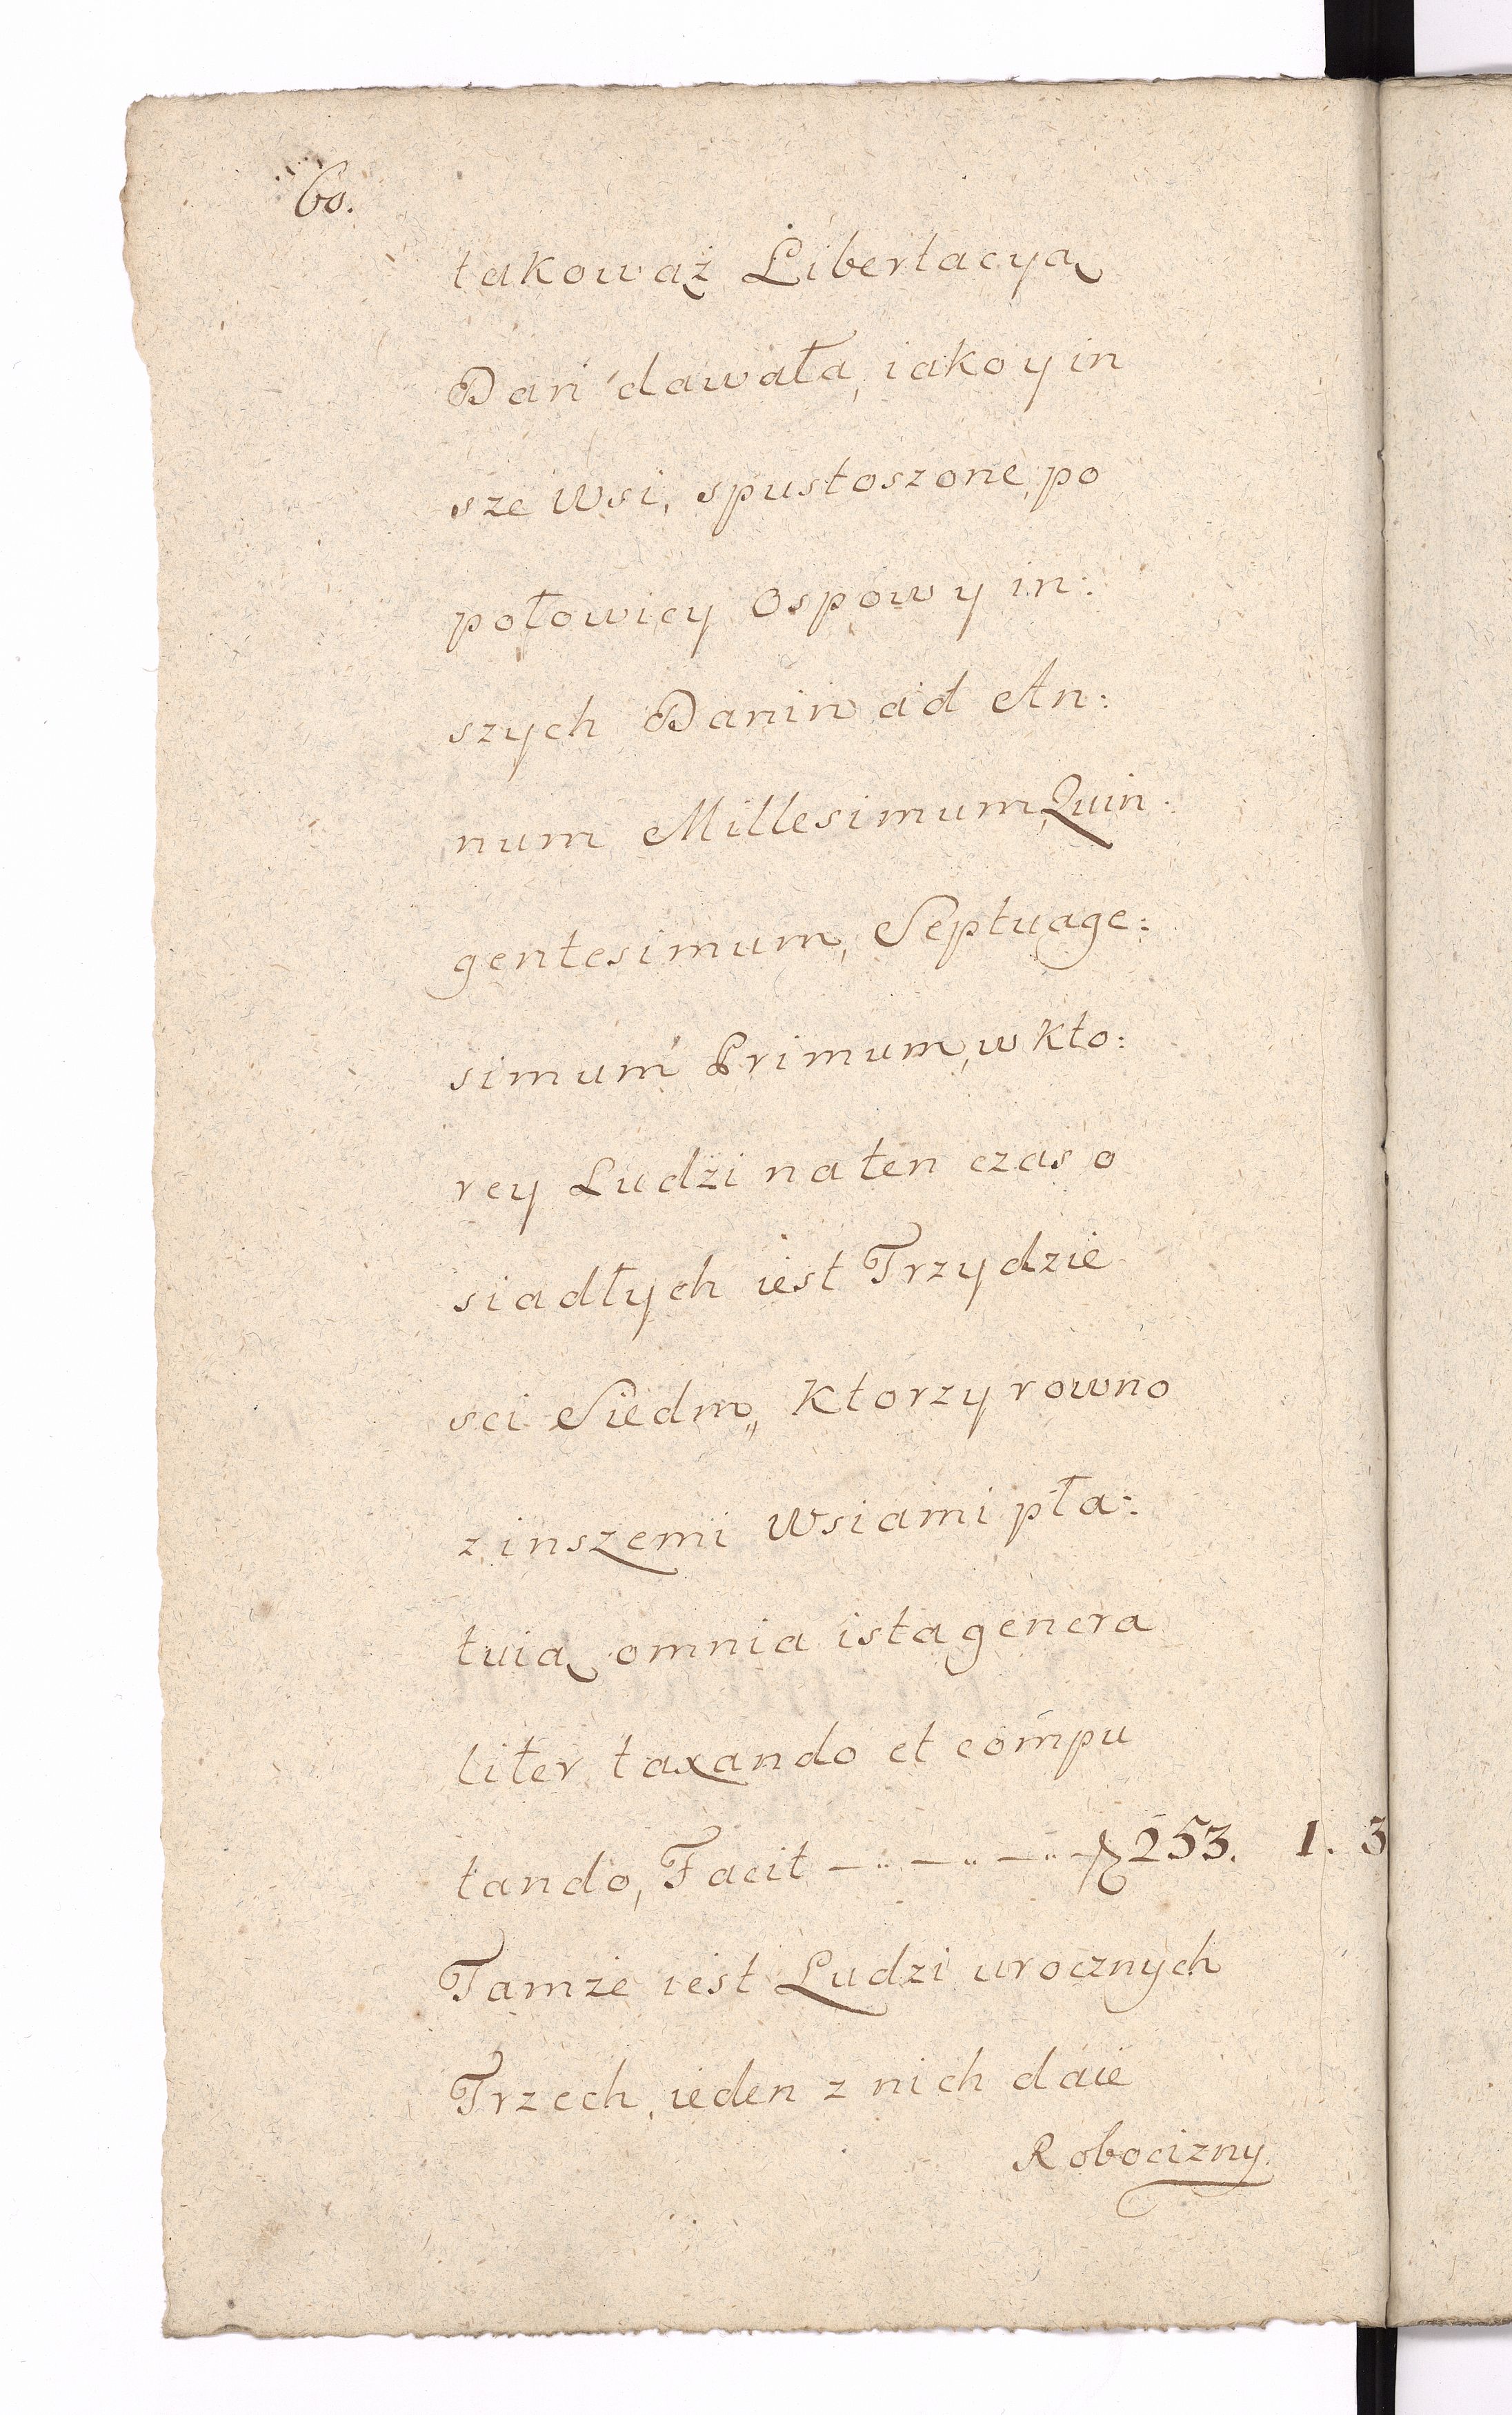 60.
takowąż Libertacyą
Dań dawała, iako y in
sze Wsi, spustoszone, po
połowicy Ospow y in:
szych Danin ad An:
num Millesimum, Quin:
gentesimum, Septuage:
simum Primum, w kto:
rey Ludzi na ten czas o
siadłych iest Trzydzie
sci Siedm,, Ktorzy rowno
z inszemi Wsiami pła:
tuią omnia ista genera
liter taxando et compu
tando, Facit 253. 1. 3
Tamże iest Ludzi urocznych
Trzech, ieden z nich daie
Robocizny.